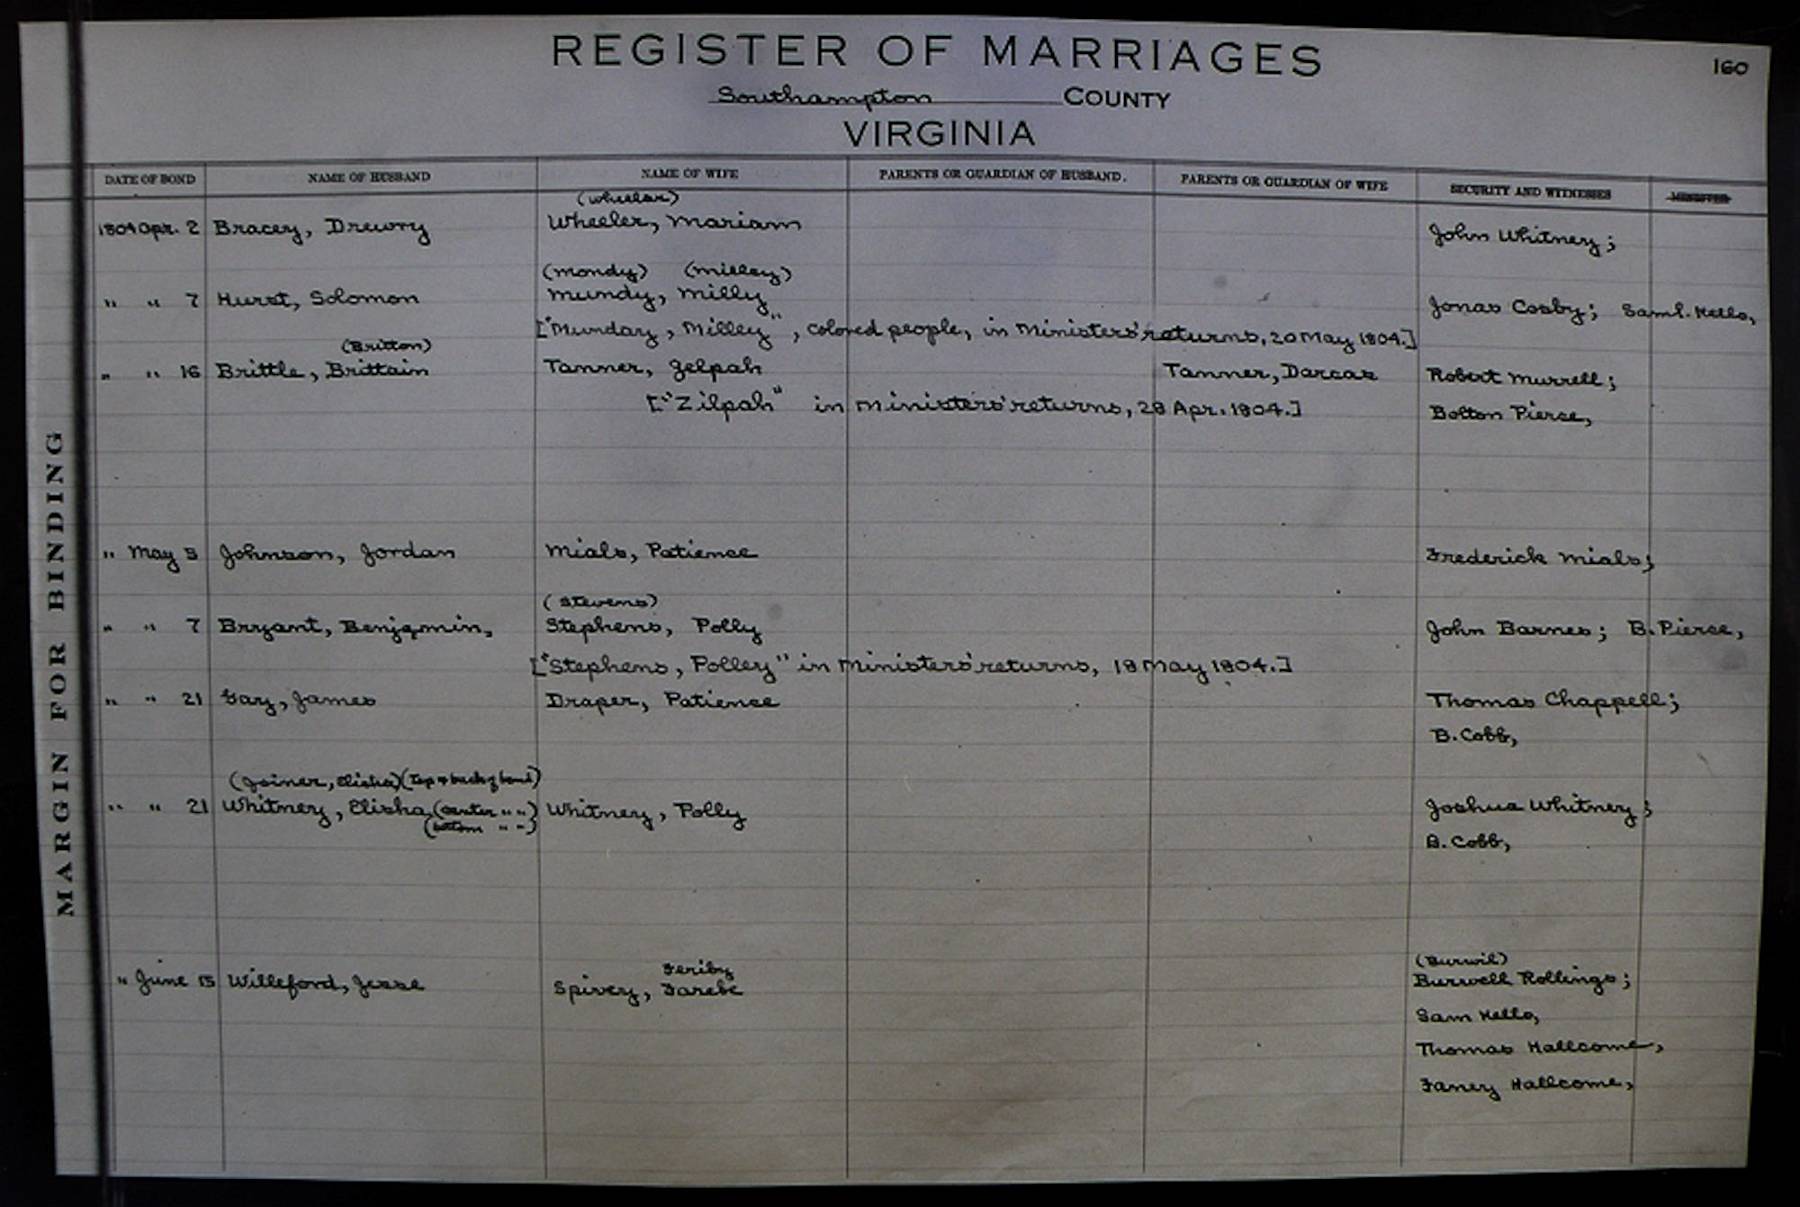 REGISTER OF MARRIAGES
160
Southampton COUNTY
VIRGINIA
DATE OF BOND NAME OF HUSBAND NAME OF WIFE PARENTS OR GUARDIAN OF HUSBAND. PARENTS OR GUARDIAN OF WIFE SECURITY AND WITNESSES MINISTER
(Wheelar)
1804 Apr. 2 Bracey, Drewry Wheeler, Mariam John Whitney;
(Mondy) (Milley)
" " 7 Hurst, Solomon Mundy, Milly Jonas Cosby; Saml. Kello,
["Munday, Milley", colored people, in Ministers' returns, 20 May 1804.]
(Britton)
" " 16 Brittle, Brittain Tanner, Zelpah Tanner, Darcas Robert Murrell;
["Zilpah" in Ministers' returns, 28 Apr. 1804.] Bolton Pierce,
" May 5 Johnson, Jordan Mials, Patience Frederick Mials;
(Stevens)
" " 7 Bryant, Benjamin, Stephens, Polly John Barnes; B. Pierce,
["Stephens, Polley" in Ministers' returns, 18 May 1804.]
" " 21 Gay, James Draper, Patience Thomas Chappell;
B. Cobb,
(Joiner, Elisha) (Top & back of bond)
" " 21 Whitney, Elisha (center " ") Whitney, Polly Joshua Whitney;
(bottom " ")
B. Cobb,
Feriby (Burwil)
" June 15 Willeford, Jesse Spivey, Farebe Burwell Rollings;
Sam Kello,
Thomas Hallcome,
Faney Hallcome,
MARGIN FOR BINDING